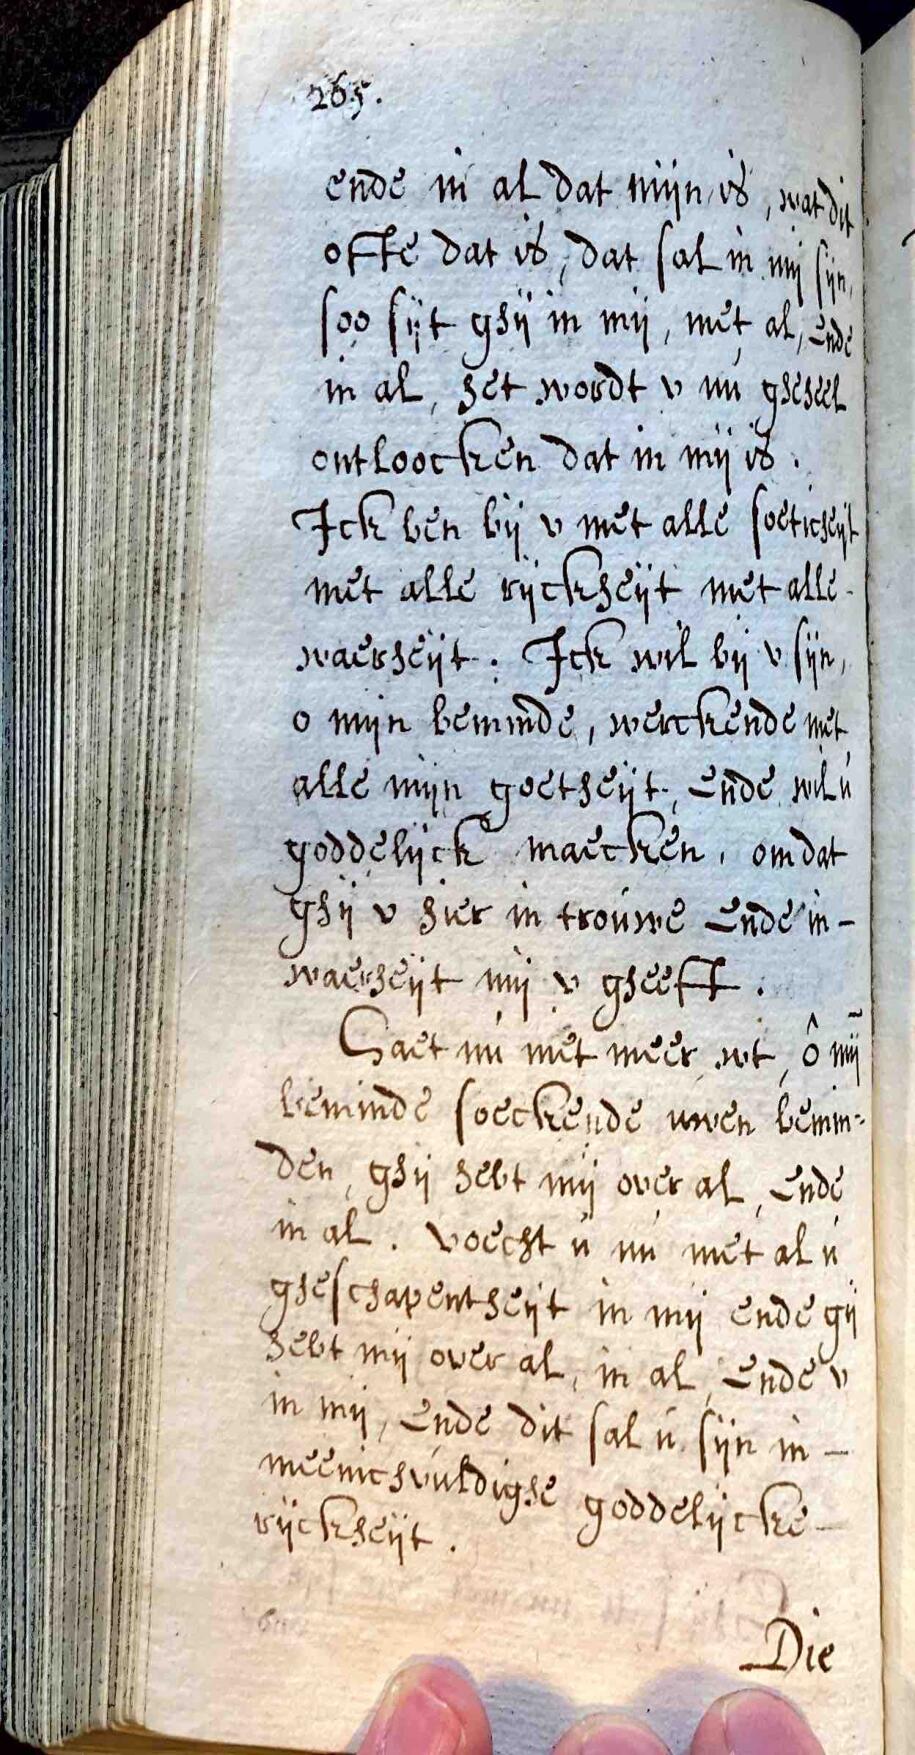 265.
ende in al dat mijn is, wat dit
ofte dat is, dat sal in mij sijn,
soo sijt ghij in mij, met al, ende
in al, het wordt v nú gheheel
ontloocken dat in mij is.
Ick ben bij v met alle soeticheijt
met alle rijckheijt met alle
waerheijt. Ick wil bij v sijn,
o mijn beminde, werckende met
alle mijn goetheijt, ende wil ú
goddelijck maecken, omdat
ghij v hier in troúwe ende in-
waerheijt mij v gheeft.
Gaet nú niet meer wt, ô mij̃
beminde soeckende uwen bemin-
den, ghij hebt mij over al, ende
in al. voecht ú nú met al ú
gheschapentheijt in mij ende gij
hebt mij over al, in al, ende v
in mij, ende dit sal ú sijn in-
meenichvúldighe goddelijcke-
rijckheijt.
Die